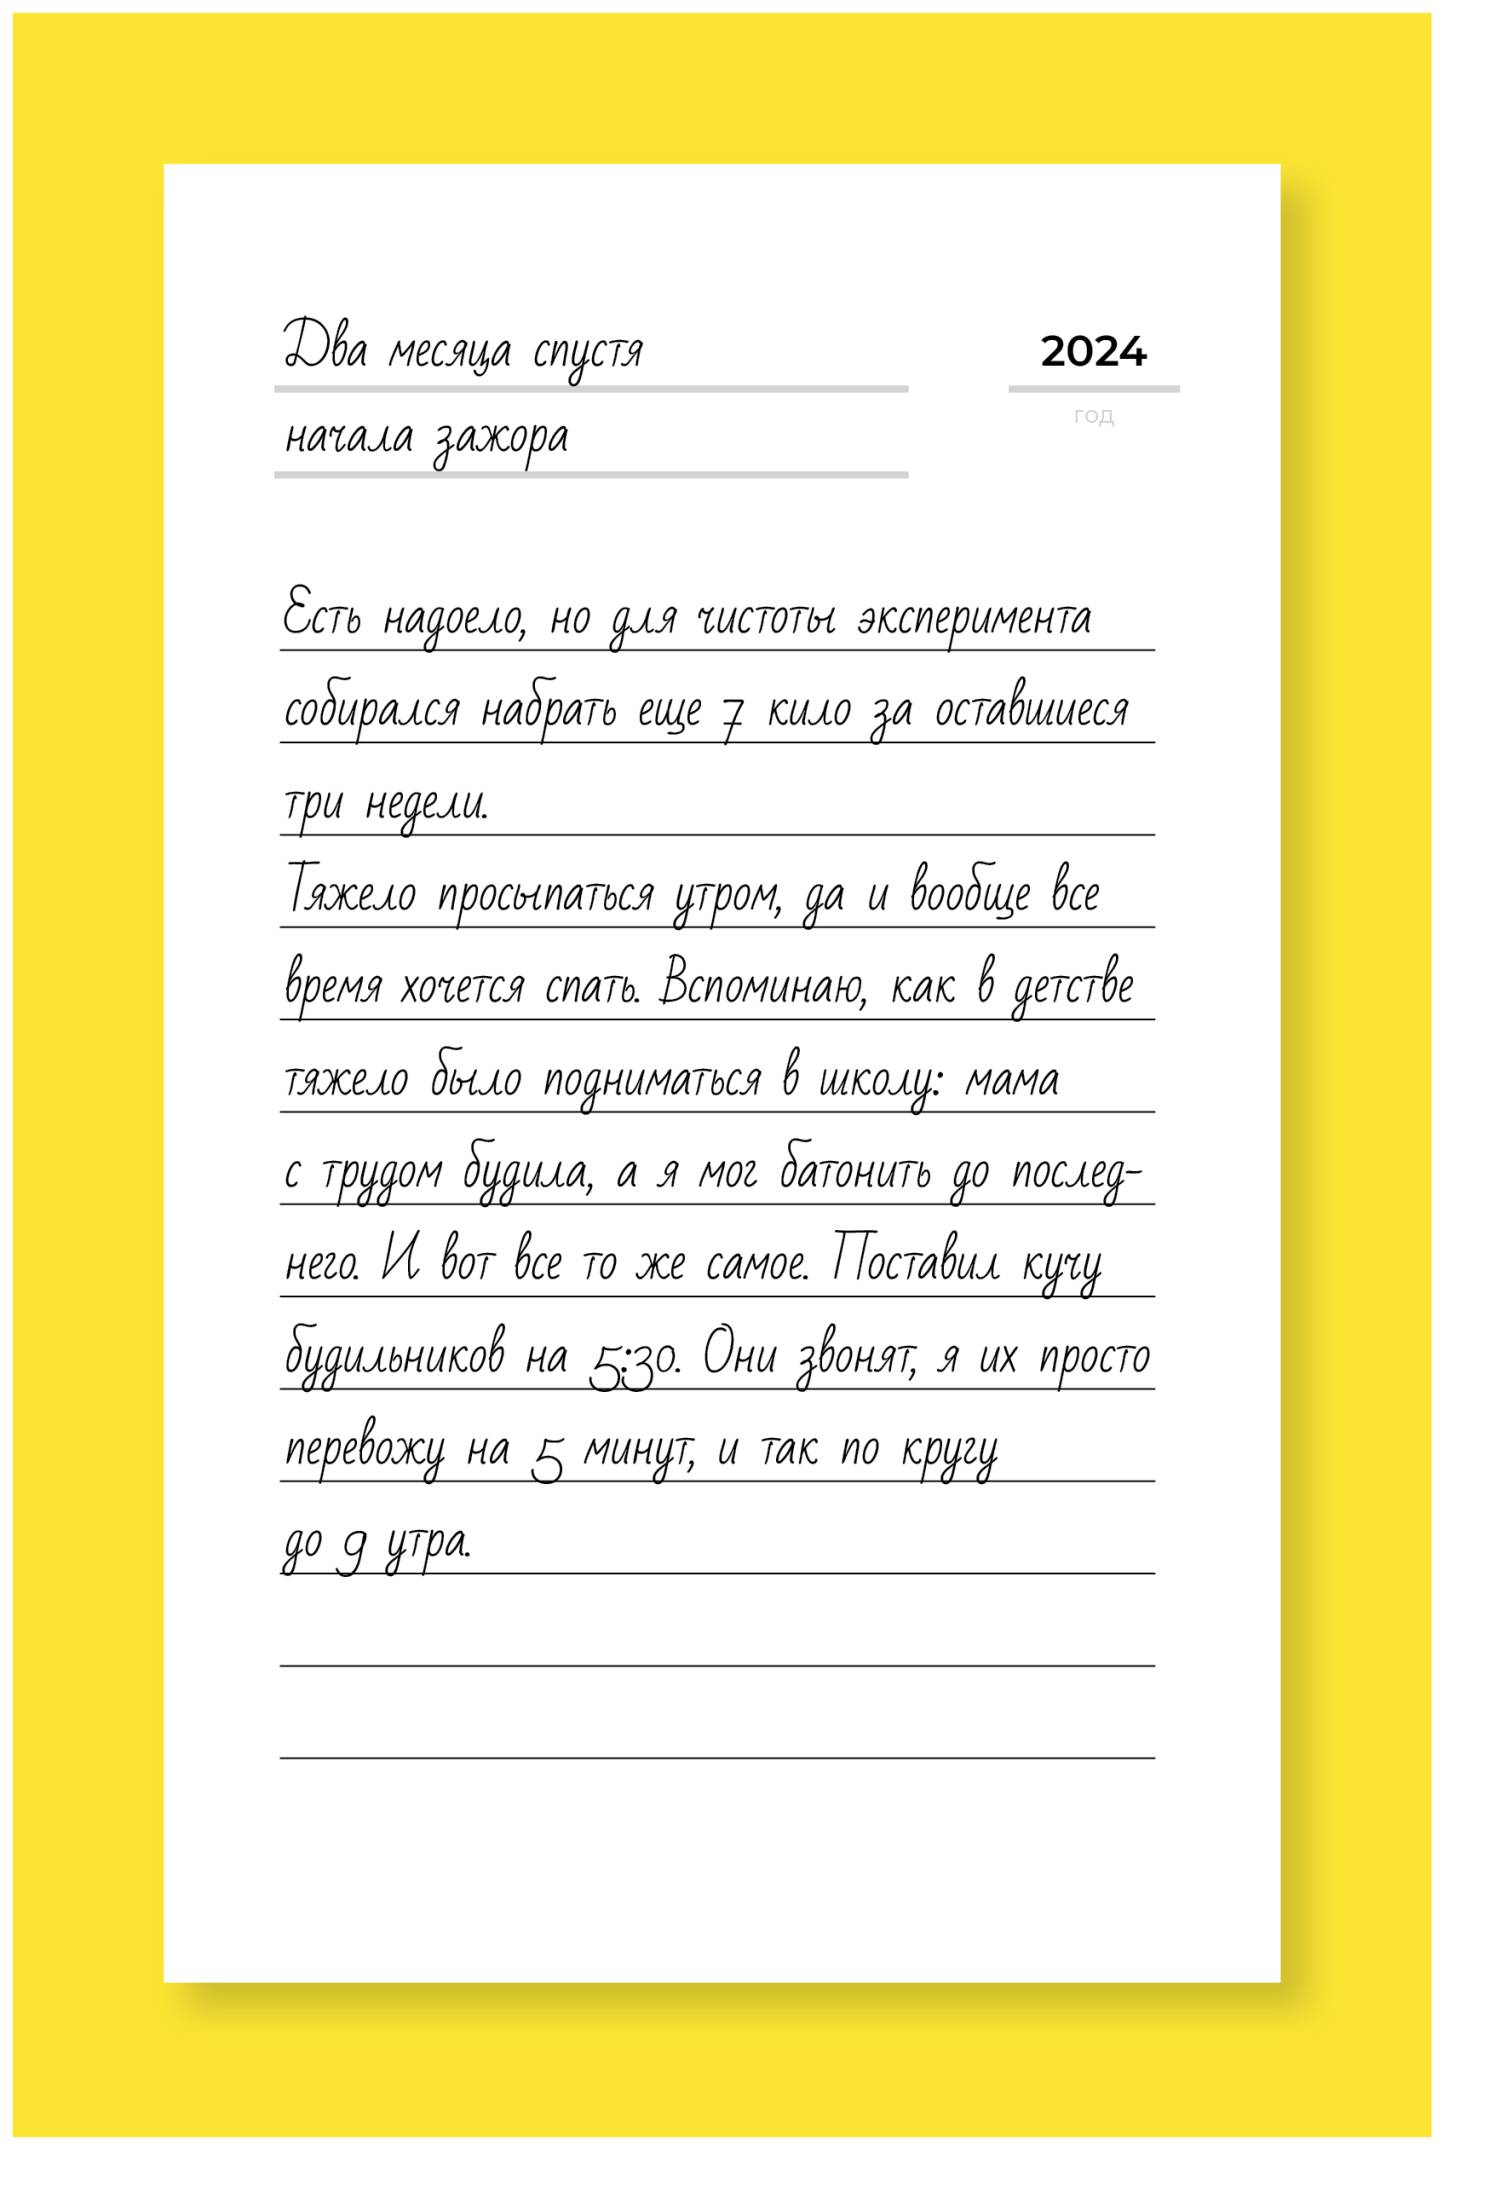 Два месяца спустя
2024
год
начала зажора
Есть надоело, но для чистоты эксперимента
собирался набрать еще 7 кило за оставшиеся
три недели.
Тяжело просыпаться утром, да и вообще все
время хочется спать. Вспоминаю, как в детстве
тяжело было подниматься в школу: мама
с трудом будила, а я мог батонить до послед-
него. И вот все то же самое. Поставил кучу
будильников на 5:30. Они звонят, я их просто
перевожу на 5 минут, и так по кругу
до 9 утра.